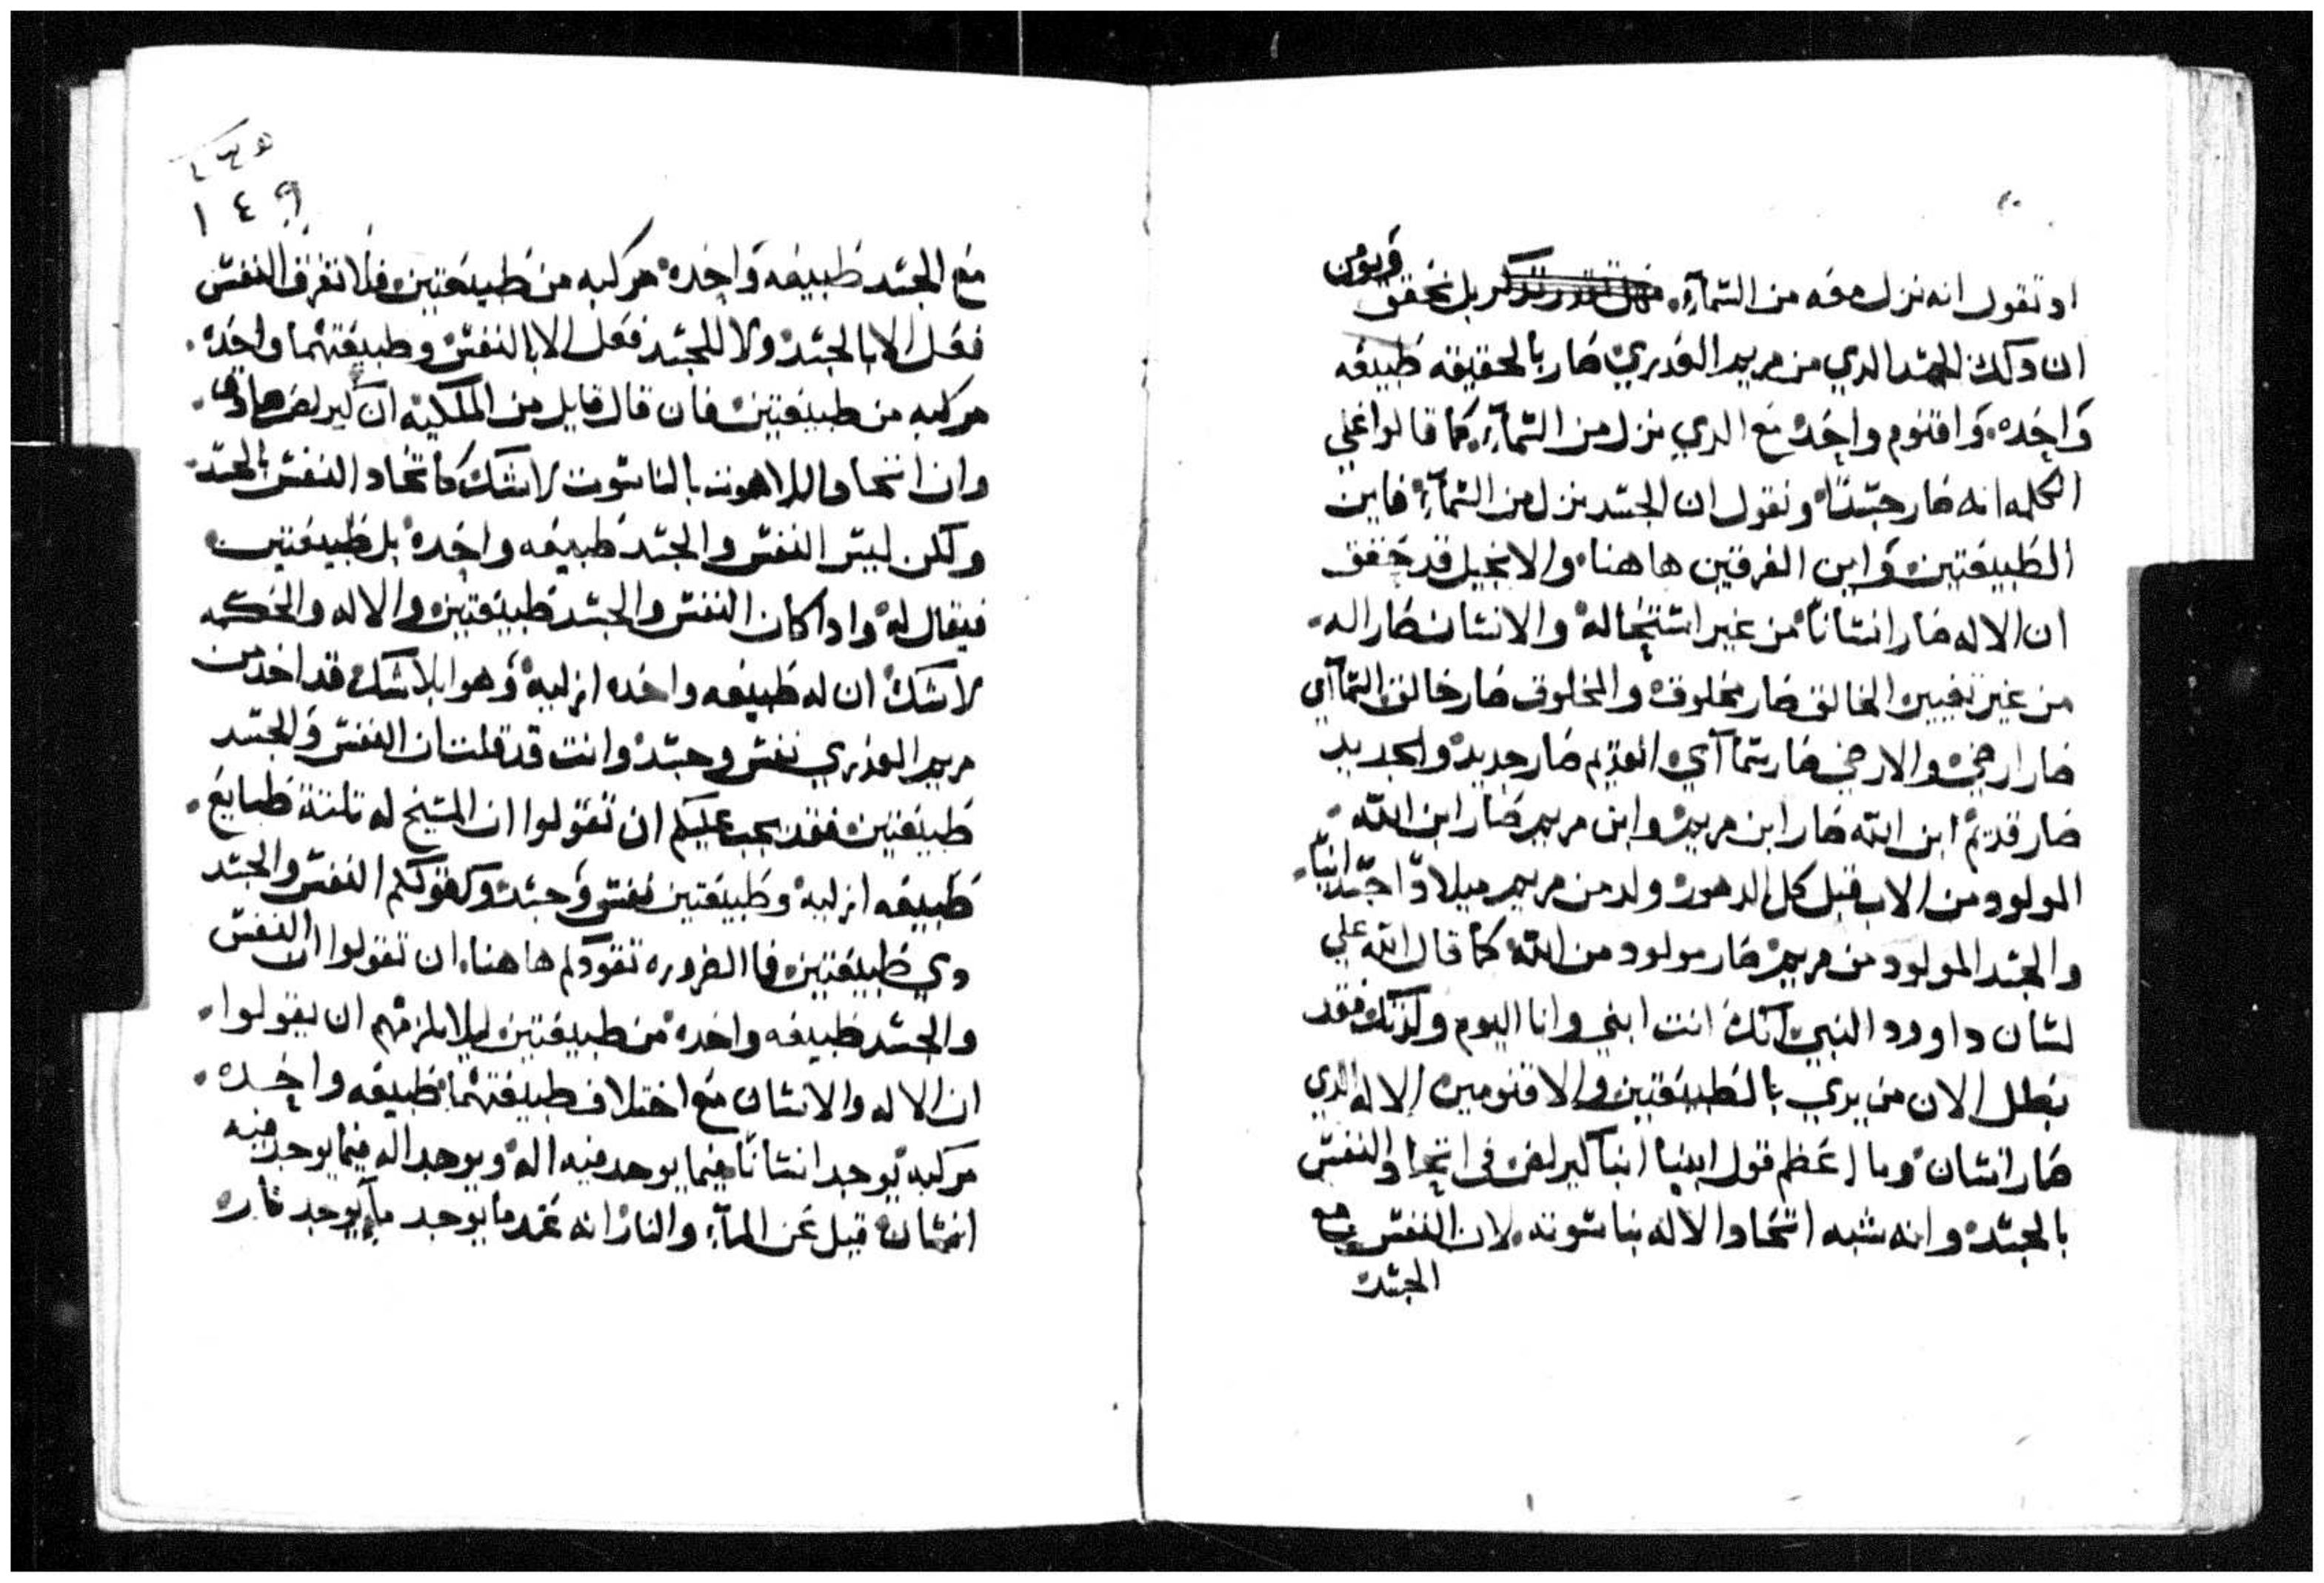 او تقول انه نزل معه من السمآء. بل نحقق ونومن
ان دلك الجسد الدي من مريم العدري صار بالحقيقه طبيعه
واحده. واقنوم واحد مع الدي نزل من السمآء. كما قالوا علي
الكلمه انه صار جسدًا ونقول ان الجسد نزل من السمآء فاين
الطبيعتين واين الفرقتين هاهنا والانجيل قد حقق
ان الاله صار انسانًا من غير استحاله والانسان صار اله.
من غير تغيير الخالق صار مخلوق والمخلوق صار خالق السمآاي
صار ارضي والارضي صار سمآاي القديم صار جديد والجديد
صار قديم ابن الله صار ابن مريم وابن مريم صار ابن الله.
المولود من الاب قبل كل الدهور ولد من مريم ميلادًا جسدانيًا.
والجسد المولود من مريم صار مولود من الله كما قال الله علي
لسان داوود النبي انك انت ابني وانا اليوم ولدتك فقد
بطل الان من يري بالطبيعتين والاقنومين الاله الدي
صار انسان وما اعظم قول ابينا انبا كيرلص في اتحاد النفس
بالجسد وانه شبه اتحاد الاله بناسوته. لان النفس مع
الجسد
١٤٩
مع الجسد طبيعه واحده مركبه من طبيعتين فلا تفرق النفس
فعل الا بالجسد ولا للجسد فعل الا بالنفس وطبيعتهما واحده.
مركبه من طبيعتين فان قال قايل من الملكيه ان كيرلص صادق.
وان اتحاد اللاهوت بالناسوت لا شك كاتحاد النفس بالجسد.
ولكن ليس النفس والجسد طبيعه واحده بل طبيعتين
فيقال له وادا كان النفس والجسد طبيعتين والاله والحكمه
لا شك ان له طبيعه واحده ازليه وهوا بلا شك قد اخد من
مريم العدري نفس وجسد وانت قد قلت ان النفس والجسد
طبيعتين فقد يجب عليكم ان تقولوا ان المسيح له تلتة طبايع.
طبيعه ازليه وطبيعتين نفس وجسد وكقولكم النفس والجسد
دي طبيعتين فاالضروره تقودكم هاهنا ان تقولوا ان النفس
والجسد طبيعه واحده من طبيعتين ليلا يلزمهم ان يقولوا.
ان الاله والانسان مع اختلاف طبيعتهما طبيعه واحده.
مركبه يوجد انسانًا فيما يوجد فيه اله ويوجد اله فيما يوجد فيه
انسان قيل عن المآء والنار انه عند ما يوجد مآء يوجد ناره